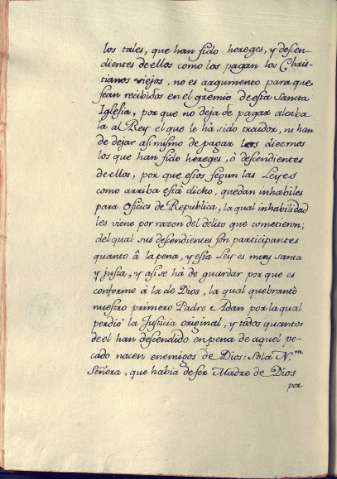 los tales, que han sido hereges, y desen-
dientes de ellos como los pagan los Chris-
tianos viejos, no es argumento para que
sean recibidos en el gremio de esta Sancta
Iglesia, por que no deja de pagar alcaba
la al Rey el que le há sido traidor, ni han
de dejar asimismo de pagar los diezmos
los que han sido hereges, ò defendientes
de ellos, por que estos segun las Leyes
como arriba está dicho, quedan inhabiles
para Oficios de Republica, la qual inhabilidad
les viene por razon del delito que cometieron;
del qual sus defendientes son participantes
quanto â la pena, y esta Ley es muy santa
y justa, y asi se há de guardar por que es
conforme â la de Dios, la qual quebrantò
nuestro primero Padre Adan por la qual
perdiò la Justicia original, y todos quantos
de el han descendido en pena de aquel pe-
cado nacen enemigos de Dios: sola N.ra
Señora, que habia de ser Madre de Dios
por